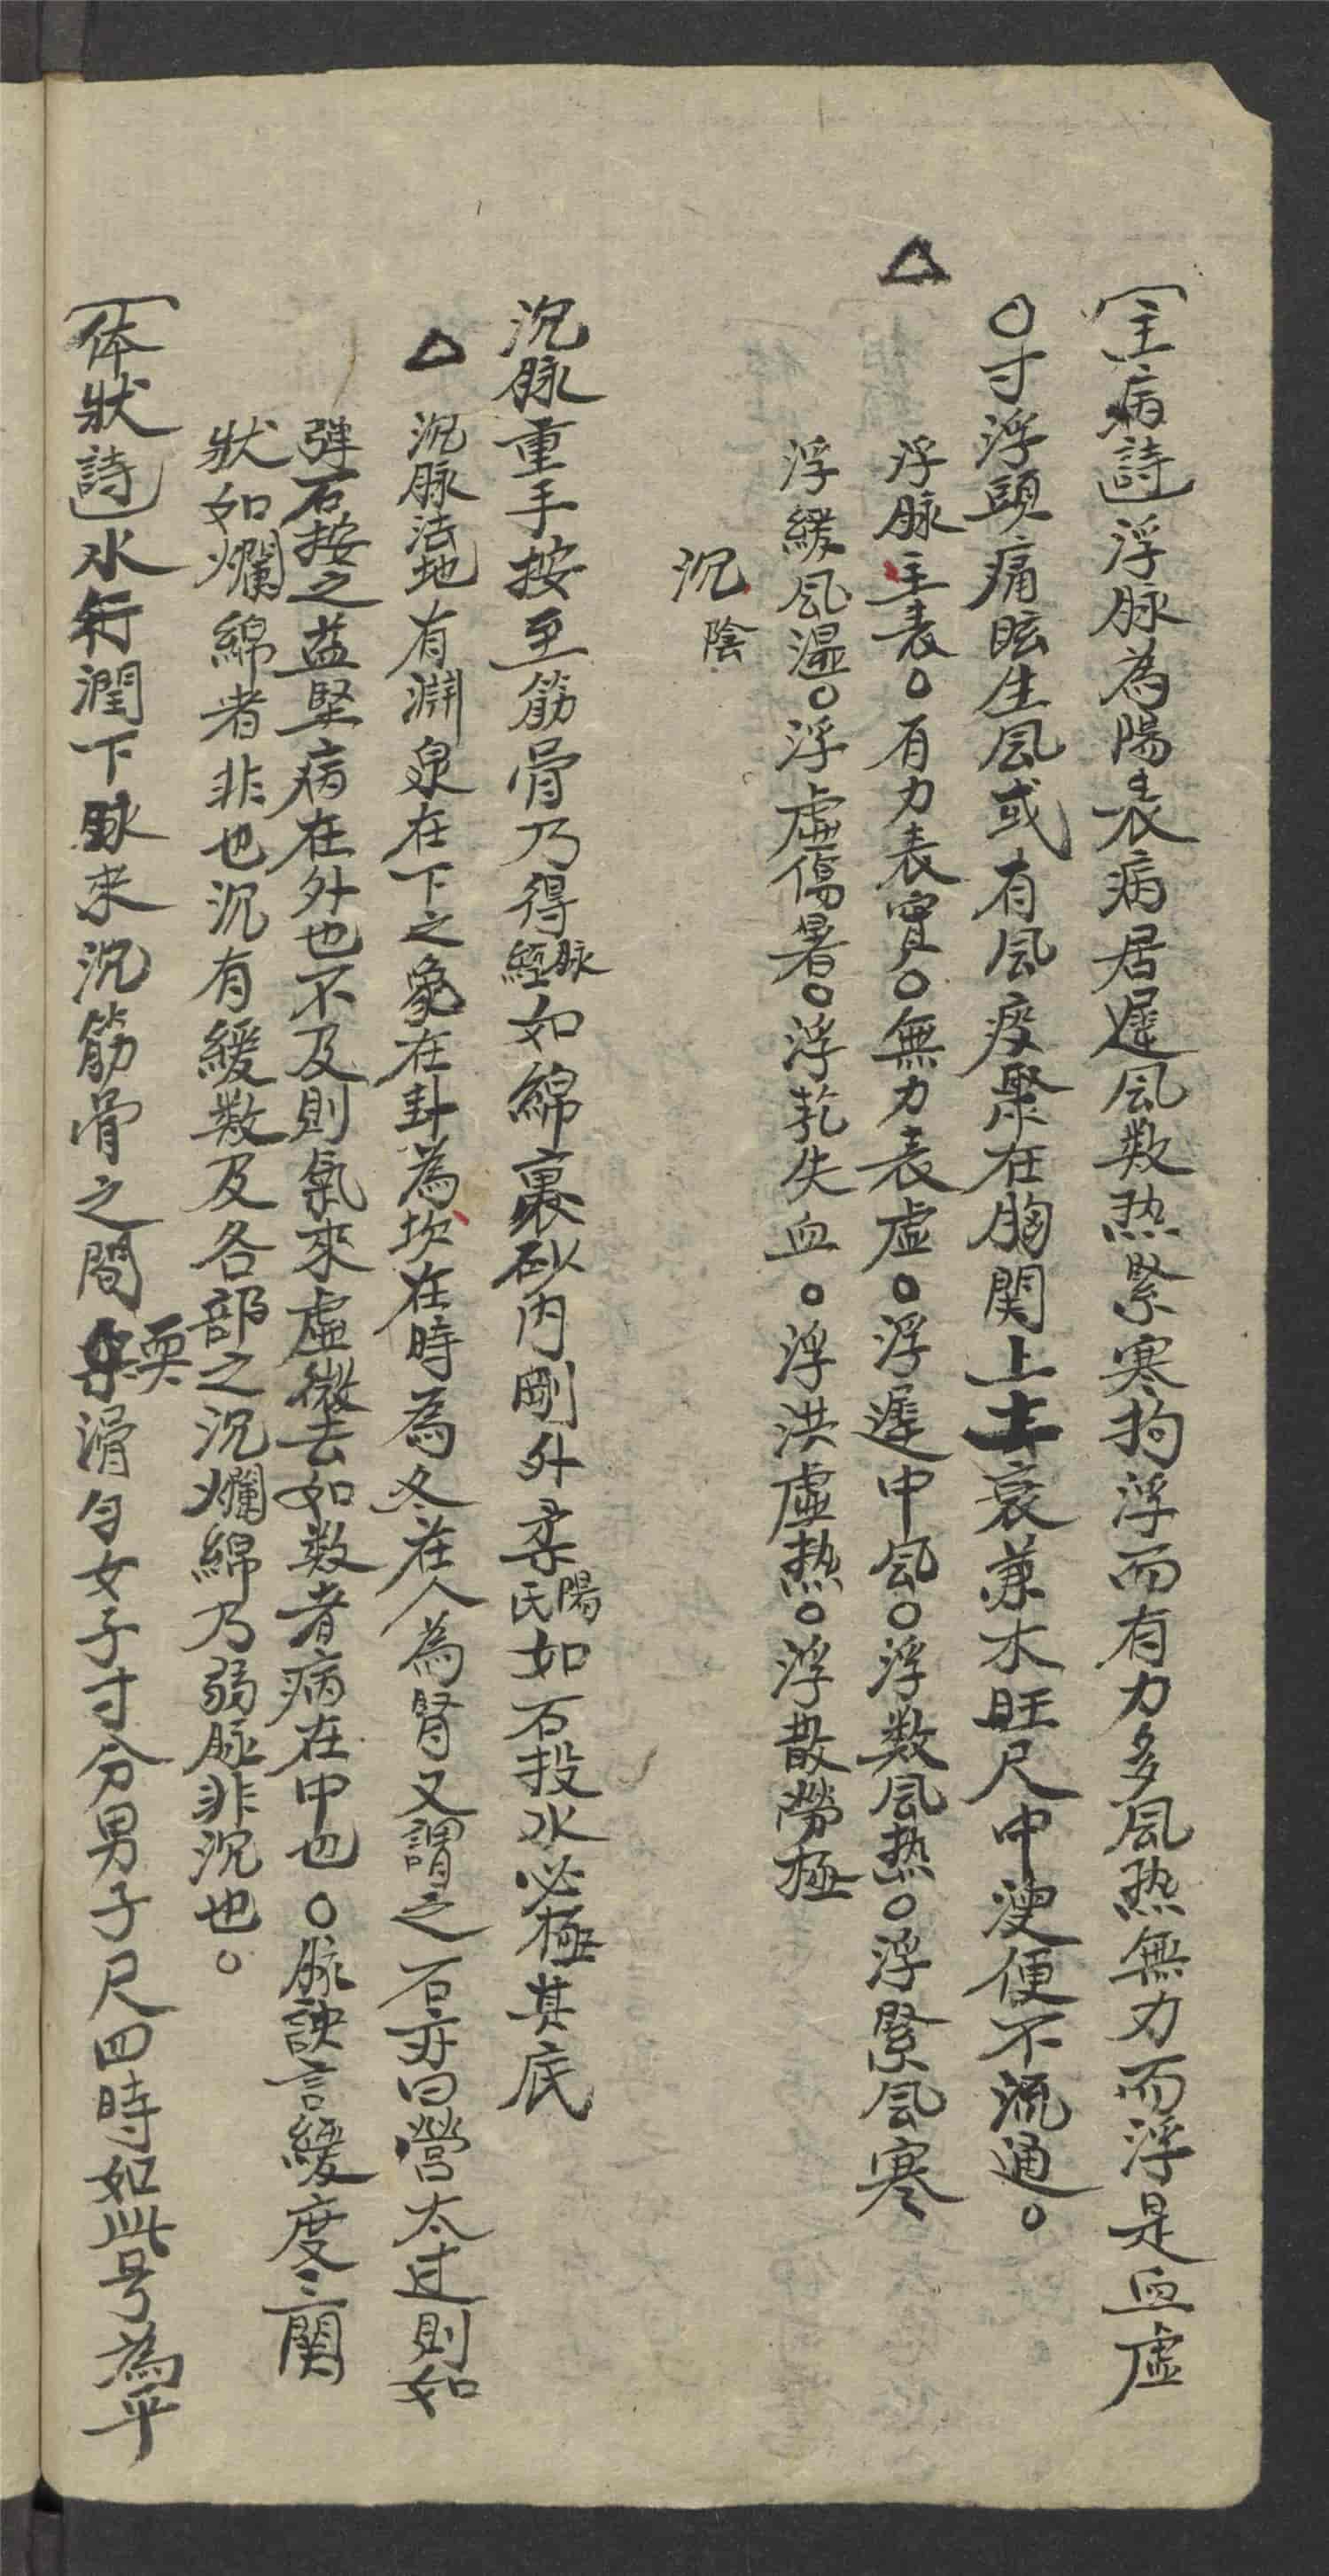 〔主病詩〕浮脉為陽表病居遲風数热緊寒拘浮而有力多風热無力而浮是血虚
○寸浮頭痛眩生風或有風痰聚在胸関上土衰兼木旺尺中溲便不流通。
△浮脉主表○有力表實○無力表虚○浮遲中風○浮数風热○浮緊風寒
浮緩風濕○浮虚傷暑○浮芤失血○浮洪虚热○浮散勞極
沉 陰
沉脉重手按至筋骨乃得脉經如綿裹砂内剛外柔陽氏如石投水必極其底
△沉脉法地有渊泉在下之象在卦為坎在時為冬在人為腎又謂之石亦曰營太过則如
弹石按之益堅病在外也不及則氣來虚微去如数者病在中也○脉訣言緩度三関
狀如爛綿者非也沉有緩数及各部之沉爛綿乃弱脉非沉也。
〔体狀詩〕水行潤下脉来沉筋骨之間耎滑匀女子寸分男子尺四時如此号為平